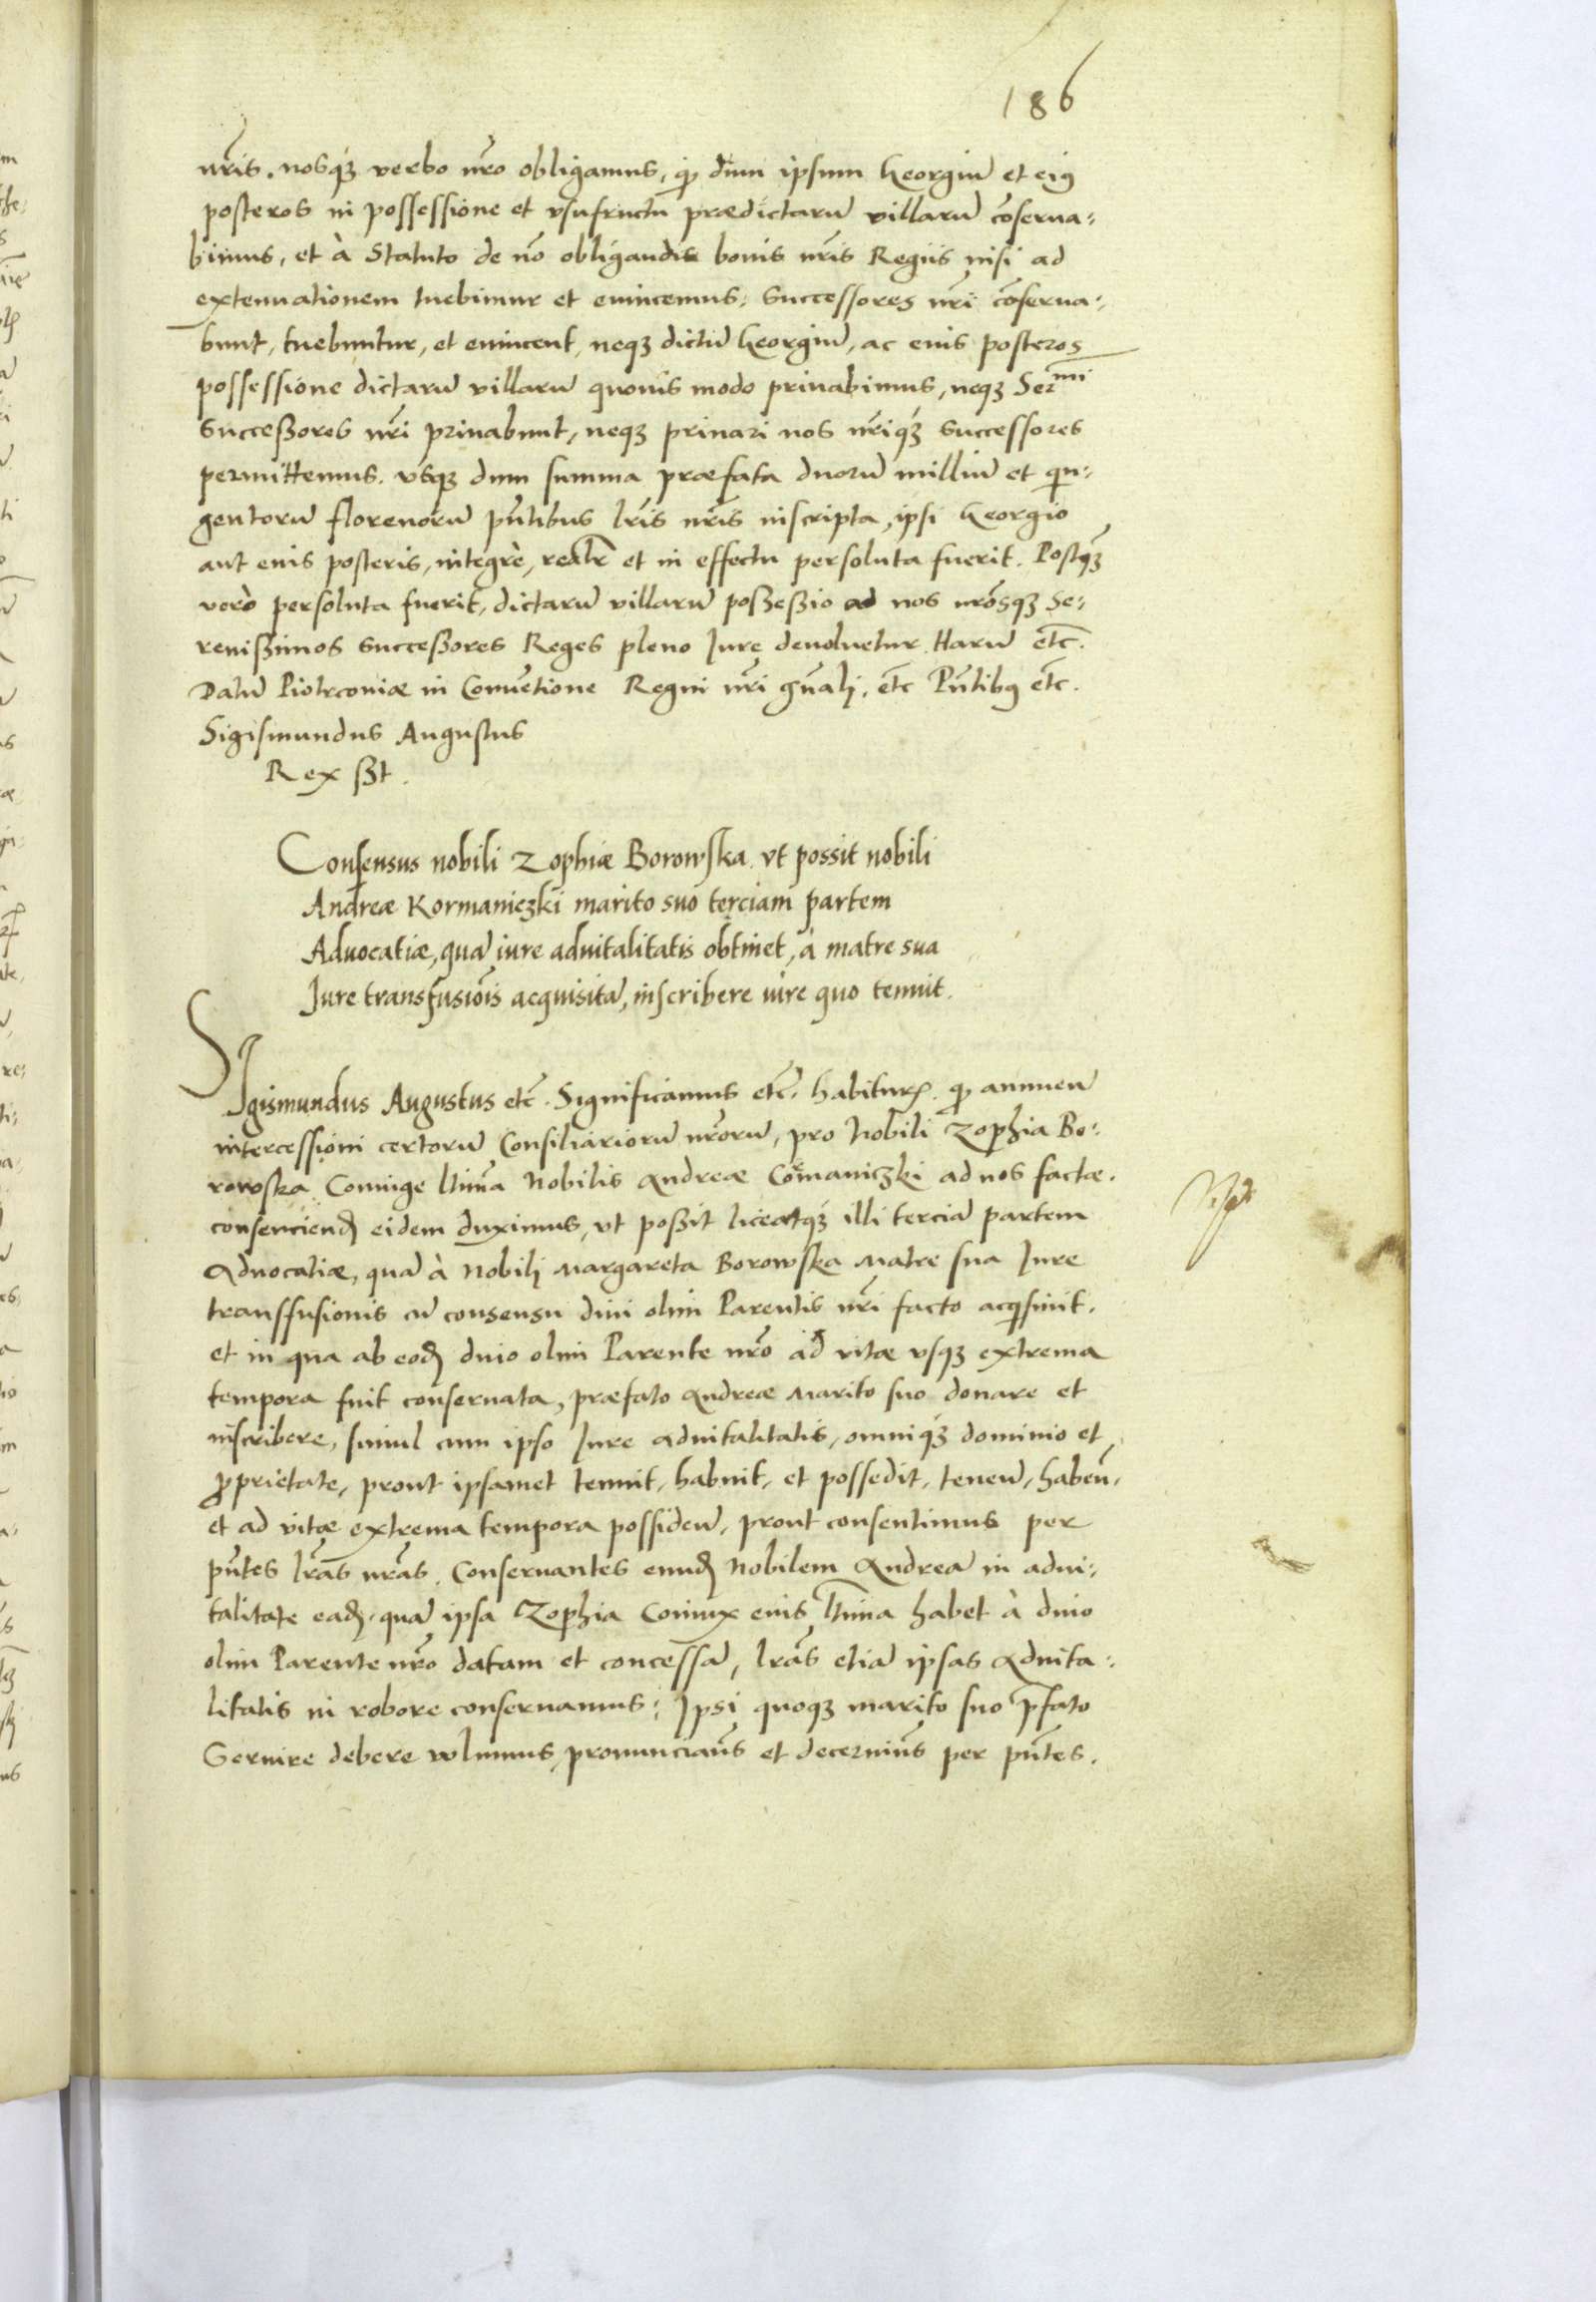 186
nr̃is. nosq́ꝫ verbo nr̃o obligamus, qɖ dum ipsum Georgiũ et eiꝰ
posteros in possessione et vsufructu prædictarũ villarũ cõserua=
bimus, et à Statuto de nõ obligandis bonis nr̃is Regiis nisi ad
extenuationem tuebimur et euincemus: Successores nr̃i cõserua=
bunt, tuebuntur, et euincent, neqꝫ dictũ Georgiũ, ac eius posteros
possessione dictarũ villarũ quouis modo priuabimus, neqꝫ Serᵐⁱ
Successores nr̃i priuabunt, neqꝫ priuari nos nr̃iq́ꝫ successores
permittemus. vsqꝫ dum summa præfata duorũ milliũ et quin=
gentorũ florenorũ pñtibus lr̃is nr̃is inscripta, ipsi Georgio
aut eius posteris, integrè, realr̃ et in effectu persoluta fuerit. Postq̃ꝫ
verò persoluta fuerit, dictarũ villarũ possessio ad nos nr̃osqꝫ Se=
renissimos successores Reges pleno Iure deuoluetur. Harũ etc̃.
Datũ Piotrconiæ in Conuẽtione Regni nr̃i gñali, etc̃ Pñtibꝰ etc̃.
Sigismundus Augustus
Rex sst.
Consensus nobili Zophiæ Borowska vt possit nobili
Andreæ Kormaniczki marito suo terciam partem
Aduocatiæ, quã iure aduitalitatis obtinet, à matre sua
Iure transfusiõis acquisitã, inscribere iure quo tenuit.
SIgismundus Augustus etc̃. Significamus etc̃. habiturꝭ. qɖ annuen̄
intercessioni certorũ Consiliariorũ nr̃orũ, pro Nobili Zophia Bo=
rowska Coniuge ltima Nobilis Andreæ Cormaniczki ad nos factæ.
consenciendꝭ eidem duximus, vt possit liceatq́ꝫ illi terciã partem
Aduocatiæ, quã à Nobili Margareta Borowska Matre sua Iure
transfusionis cũ consensu diui olim Parentis nr̃i facto acquisiuit.
et in qua ab eodꝭ diuo olim Parente nr̃o ad vitæ vsqꝫ extrema
tempora fuit conseruata, præfato Andreæ Marito suo donare et
inscribere, simul cum ipso Iure aduitalitatis, omniq́ꝫ dominio et
ꝓprietate, prout ipsamet tenuit, habuit, et possedit, tenen̄, haben̄,
et ad vitæ extrema tempora possiden̄, prout consentimus per
pñtes lr̃as nr̃as. Conseruantes eundꝭ Nobilem Andreã in adui=
talitate eadꝭ, quã ipsa Zophia Coniux eius ltima habet à diuo
olim Parente nr̃o datam et concessã, lr̃as etiã ipsas Aduita=
litatis in robore conseruamus: Ipsi quoqꝫ marito suo p̃fato
Seruire debere volumus, pronunciam̃s et decernim̃s per pñtes.